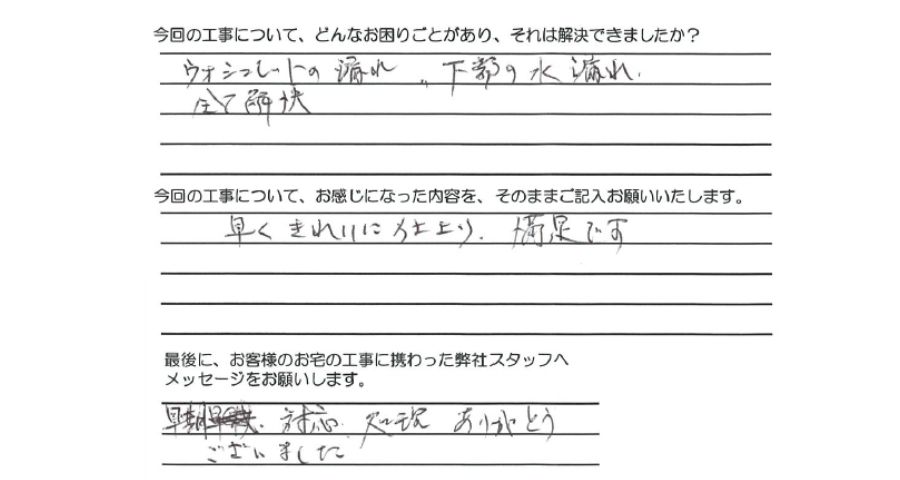 今回の工事について、どんなお困りごとがあり、それは解決できましたか？
ウォシュレットの漏れ、下部の水漏れ.
全て解決
今回の工事について、お感じになった内容を、そのままご記入お願いいたします。
早くきれいに仕上り、満足です
最後に、お客様のお宅の工事に携わった弊社スタッフへ
メッセージをお願いします。
早期 対応 処理 ありがとう
ございました